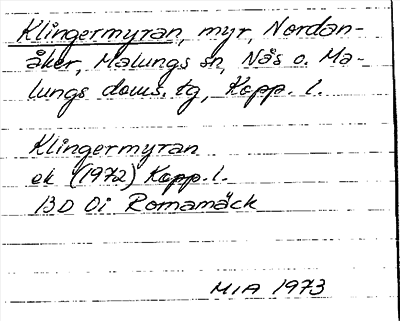 Klingermyran, myr, Nordan-
åker, Malungs sn, Nås o. Ma-
lungs doms. tg, Kopp. l.
Klingermyran
ek (1972) Kopp. l.
13D 0i Romamäck
MIA 1973